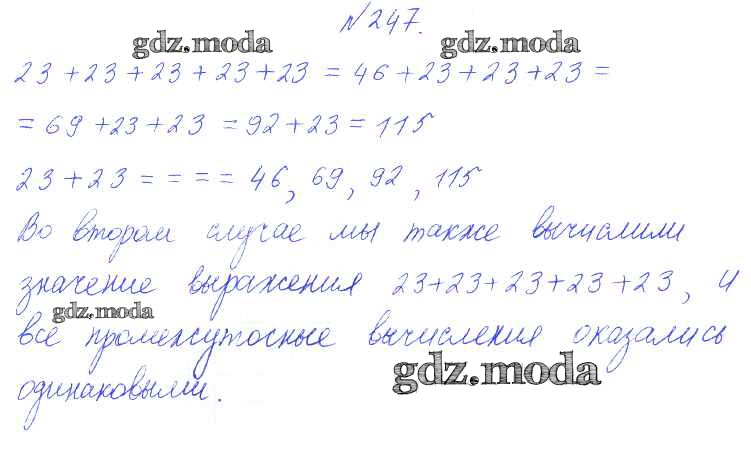 №247.
gdz.moda gdz.moda
23+23+23+23+23=46+23+23+23=
=69+23+23=92+23=115
23+23==== 46, 69, 92, 115
Во втором случае мы также вычислили
значение выражения 23+23+23+23+23, и
gdz.moda
все промежуточные вычисления оказались
gdz.moda
одинаковыми.